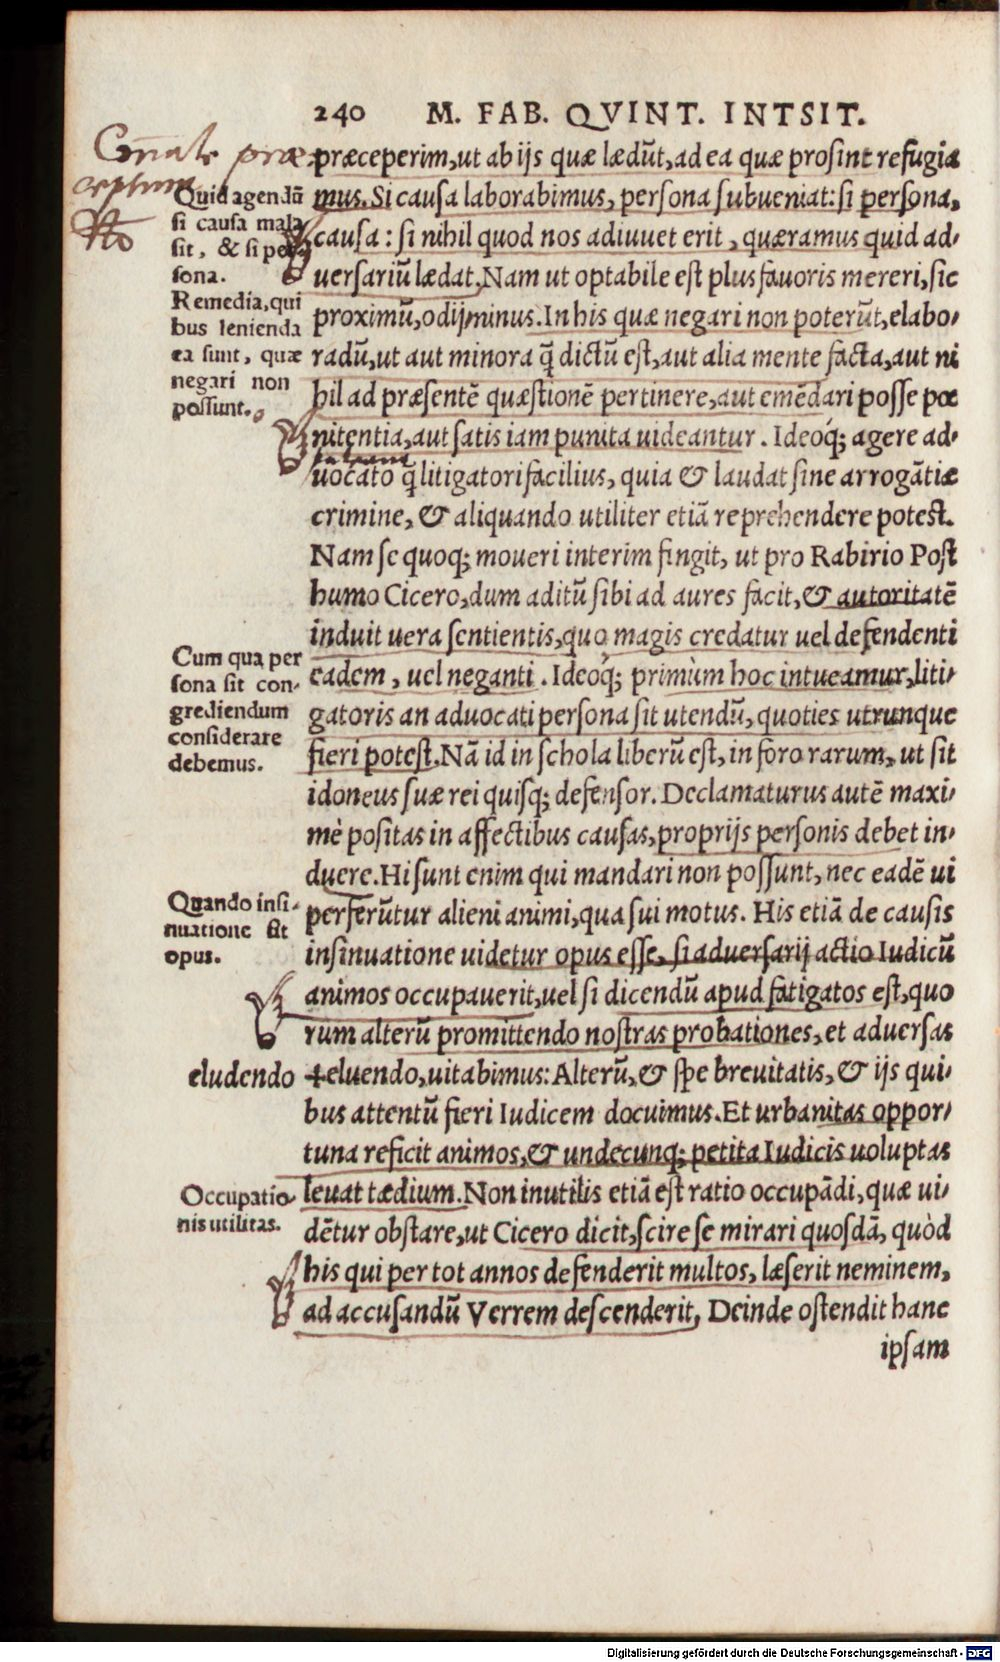 240 M. FAB. QVINT. INTSIT.
præceperim, ut ab ijs quæ lædūt, ad ea quæ prosint refugia
mus. Si causa laborabimus, persona subueniat: si persona,
causa: si nihil quod nos adiuuet erit, quæramus quid ad-
uersariū lædat. Nam ut optabile est plus fauoris mereri, sic
proximū, odij minus. In his quæ negari non poterūt, elabo-
radū, ut aut minora q̄ dictū est, aut alia mente facta, aut ni
hil ad præsentē quæstionē pertinere, aut emēdari posse pœ
nitentia, aut satis iam punita uideantur. Ideoq; agere ad-
uocato q̄ litigatori facilius, quia & laudat sine arrogātiæ
crimine, & aliquando utiliter etiā reprehendere potest.
Nam se quoq; moueri interim fingit, ut pro Rabirio Post
humo Cicero, dum aditū sibi ad aures facit, & autoritatē
induit uera sentientis, quo magis credatur uel defendenti
eadem, uel neganti. Ideoq; primùm hoc intueamur, liti-
gatoris an aduocati persona sit utendū, quoties utrunque
fieri potest. Nā id in schola liberū est, in foro rarum, ut sit
idoneus suæ rei quisq; defensor. Declamaturus autē maxi-
mè positas in affectibus causas, proprijs personis debet in-
duere. Hi sunt enim qui mandari non possunt, nec eadē ui
perferūtur alieni animi, qua sui motus. His etiā de causis
insinuatione uidetur opus esse, si aduersarij actio Iudicū
animos occupauerit, uel si dicendū apud fatigatos est, quo
rum alterū promittendo nostras probationes, et aduersas
✢eluendo, uitabimus: Alterū, & spe breuitatis, & ijs qui-
bus attentū fieri Iudicem docuimus. Et urbanitas oppor-
tuna reficit animos, & undecunq; petita Iudicis uoluptas
leuat tædium. Non inutilis etiā est ratio occupādi, quæ ui-
dētur obstare, ut Cicero dicit, scire se mirari quosdā, quòd
his qui per tot annos defenderit multos, læserit neminem,
ad accusandū Verrem descenderit, Deinde ostendit hanc
ipsam
Quid agendū
si causa mala
sit, & si per-
sona.
Remedia, qui
bus lenienda
ea sunt, quæ
negari non
possunt.
Cum qua per
sona sit con-
grediendum
considerare
debemus.
Quando insi-
nuatione sit
opus.
eludendo
Occupatio-
nis utilitas.
Digitalisierung gefördert durch die Deutsche Forschungsgemeinschaft - DFG